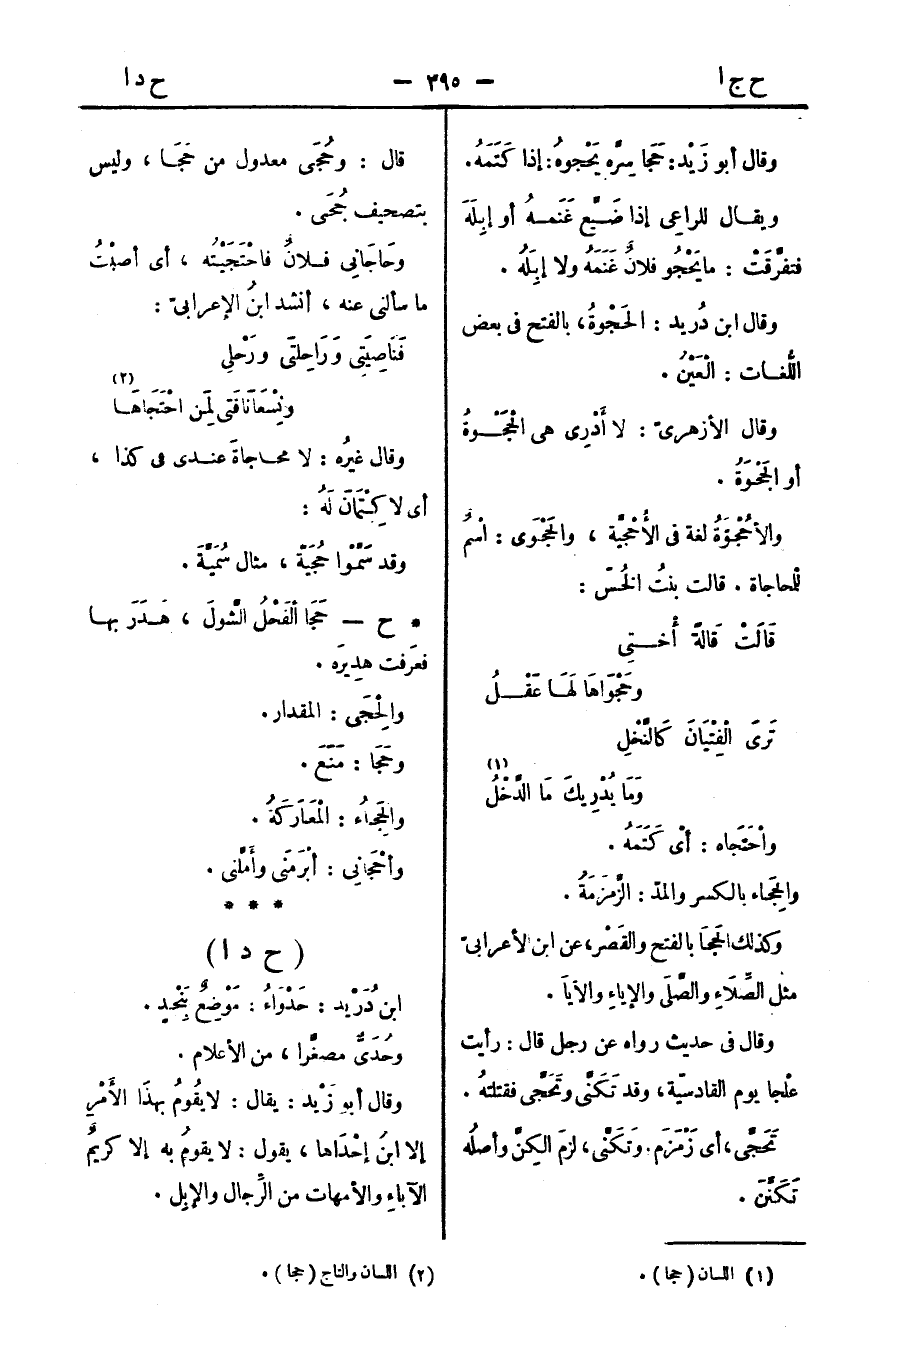 ح ج ا
— ٣٩٥ —
ح د ا
وقال أبو زَيْد: حَجَا سِرَّه يَحْجوهُ: إذا كَتَمَهُ.
ويقال للراعى إذا ضَيَّع غَنمَهُ أو إبِلَهَ
فتفرَّقَتْ : ما يَحْجُو فلانٌ غَنَمَهُ ولا إبِلَهُ .
وقال ابن دُريد : الحَجْوةُ، بالفتح فى بعض
اللُّغات : الْعَيْنُ .
وقال الأزهرىّ : لا أَدْرِى هى الْحَجْوةُ
أو الْجَحْوَةُ .
والأُحْجُوَّةُ لغة فى الأُحْجِيَّة ، والحَجْوَى : اسْمٌ
للمحاجاة . قالت بنتُ الخُسّ :
قَالَتْ قَالةً أُختِى
وحَجْوَاهَا لَهَا عَقْلُ
تَرَىَ الْفِتْيَانَ كَالنَّخْلِ
وَمَا يُدْرِيكَ مَا الدَّخْلُ (١)
واْحتَجَاه : أىْ كَتَمَهُ .
والحِجَاء بالكسر والمدّ : الزَّمزَمَةُ .
وكذلك الحَجَا بالفتح والقَصْر، عن ابن الأعرابىّ
مثل الصَّلَاءِ والصَّلَى والإياءِ والأَيَا .
وقال فى حديث رواه عن رجل قال : رأيت
عِلْجا يوم القادسيّة، وقد تَكَنَّى وتَحَجَّى فقتلتهُ .
تَحَجَّى، أى زَمْزَم . وتَكَنَّى، لزمَ الكِنَّ وأصلُه
تَكَنَّنَ .
(١) اللسان (حجا) .
قال : وحُجَى معدول من حَجَا ، وليس
بتصحيف جُحَى .
وحَاجَانِى فلانٌ فاحْتَجَيْتُه ، أى أصبْتُ
ما سألنى عنه ، أنشد ابنُ الإعرابىّ :
فَنَاصِيَتِى وَرَاحِلتَى ورَحْلِى
ونِسْعَا نَاقَتى لِمَن احْتَجَاهَا (٢)
وقال غيرُه : لا محاجاةَ عندى فى كذا ،
أى لا كِتْمَانَ لَهُ :
وقد سَمَّوْا حُجَيَّة ، مثال سُمَيَّة .
* ح — حَجَا الفَحْلُ الشَّولَ ، هَدَرَ بها
فعرَفت هديرَه .
والْحِجَى : المقدار .
وحَجَا : مَنَعَ .
والحِجَاءُ : الْمَعَارَكَةُ .
وأحْجَانِى : أبْرَمَنى وأَمَلَّنى .
* * *
(ح د ا)
ابن دُرَيْد : حَدْوَاءُ : مَوْضِعٌ بِنَجْدٍ .
وحُدَىٌّ مصغَّرا ، من الأعلام .
وقال أبو زَيْد : يقال : لا يقُومُ بهذَا الأَمْرِ
إلا ابنُ إحْدَاها ، يقول : لا يقومُ به إلا كريمُ
الآباءِ والأمهات من الرِّجال والإبِل .
(٢) اللسان والتاج (حجا) .